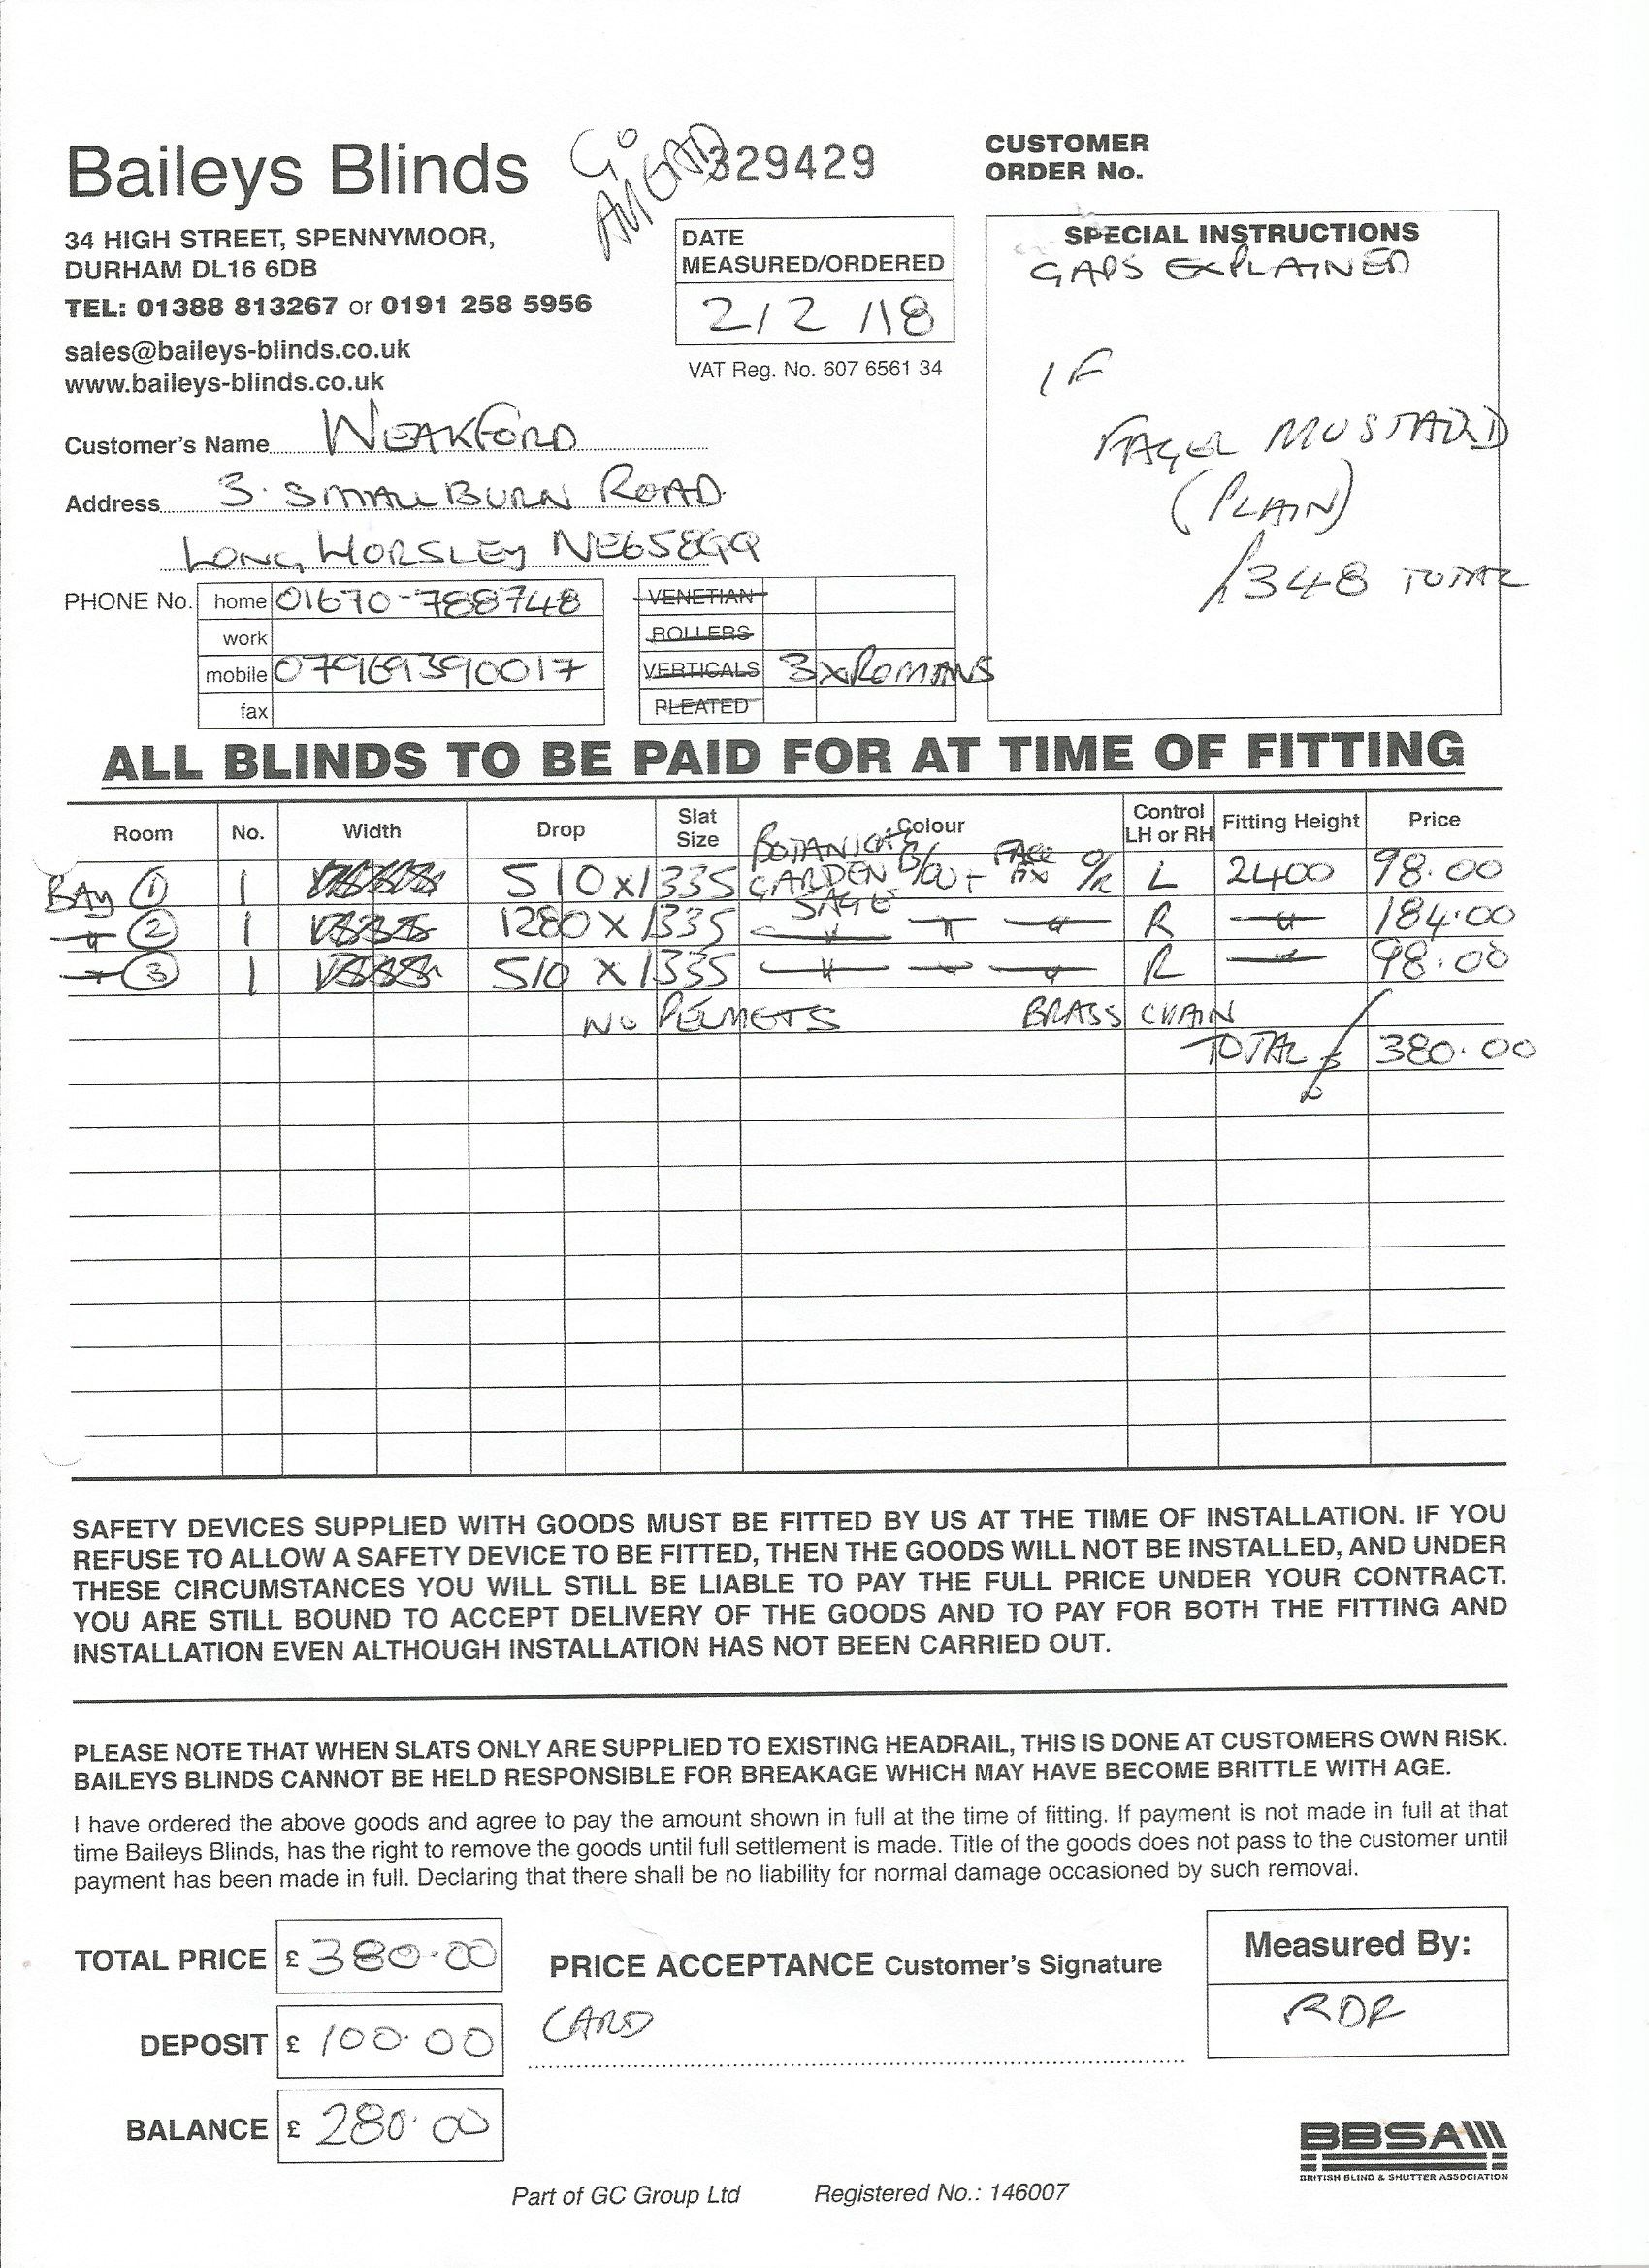 Baileys Blinds
GO AHEAD
329429
34 HIGH STREET, SPENNYMOOR,
DURHAM DL16 6DB
TEL: 01388 813267 or 0191 258 5956
sales@baileys-blinds.co.uk
www.baileys-blinds.co.uk
DATE
MEASURED/ORDERED
2/2/18
VAT Reg. No. 607 6561 34
CUSTOMER
ORDER No.
SPECIAL INSTRUCTIONS
GAPS EXPLAINED
IF
MUSTARD
(PLAIN)
348 TOTAL
Customer's Name WEAKFORD
Address 3. SMALLBURN ROAD
LONG HORSLEY NE65 8QQ
PHONE No. home 01670-788748
work
mobile 07969390017
fax
VENETIAN
ROLLERS
VERTICALS 3xROMANS
PLEATED
ALL BLINDS TO BE PAID FOR AT TIME OF FITTING
Room No. Width Drop Slat Size Colour Control LH or RH Fitting Height Price
BAY 1 1 510x1335 BOTANICAL GARDEN SAGE B/OUT FACE FIX O/R L 2400 98.00
" 2 1 1280 x 1335 " " " R " 184.00
" 3 1 510 x 1335 " " " R " 98.00
NO PELMETS BRASS CHAIN
TOTAL £ 380.00
SAFETY DEVICES SUPPLIED WITH GOODS MUST BE FITTED BY US AT THE TIME OF INSTALLATION. IF YOU
REFUSE TO ALLOW A SAFETY DEVICE TO BE FITTED, THEN THE GOODS WILL NOT BE INSTALLED, AND UNDER
THESE CIRCUMSTANCES YOU WILL STILL BE LIABLE TO PAY THE FULL PRICE UNDER YOUR CONTRACT.
YOU ARE STILL BOUND TO ACCEPT DELIVERY OF THE GOODS AND TO PAY FOR BOTH THE FITTING AND
INSTALLATION EVEN ALTHOUGH INSTALLATION HAS NOT BEEN CARRIED OUT.
PLEASE NOTE THAT WHEN SLATS ONLY ARE SUPPLIED TO EXISTING HEADRAIL, THIS IS DONE AT CUSTOMERS OWN RISK.
BAILEYS BLINDS CANNOT BE HELD RESPONSIBLE FOR BREAKAGE WHICH MAY HAVE BECOME BRITTLE WITH AGE.
I have ordered the above goods and agree to pay the amount shown in full at the time of fitting. If payment is not made in full at that
time Baileys Blinds, has the right to remove the goods until full settlement is made. Title of the goods does not pass to the customer until
payment has been made in full. Declaring that there shall be no liability for normal damage occasioned by such removal.
TOTAL PRICE £ 380.00
DEPOSIT £ 100.00
BALANCE £ 280.00
PRICE ACCEPTANCE Customer's Signature
CARD
Measured By:
RDF
BBSA
BRITISH BLIND & SHUTTER ASSOCIATION
Part of GC Group Ltd Registered No.: 146007